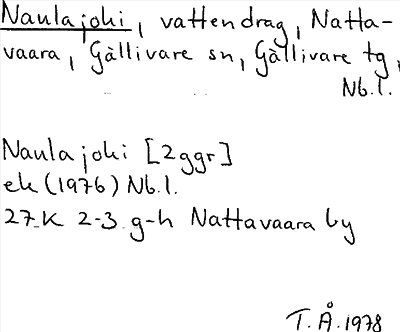 Naulajoki, vattendrag, Natta-
vaara, Gällivare sn, Gällivare tg,
Nb.l.
Naulajoki [2ggr]
ek (1976) Nb.l.
27.K 2-3 g-h Nattavaara by
T.Å.1978